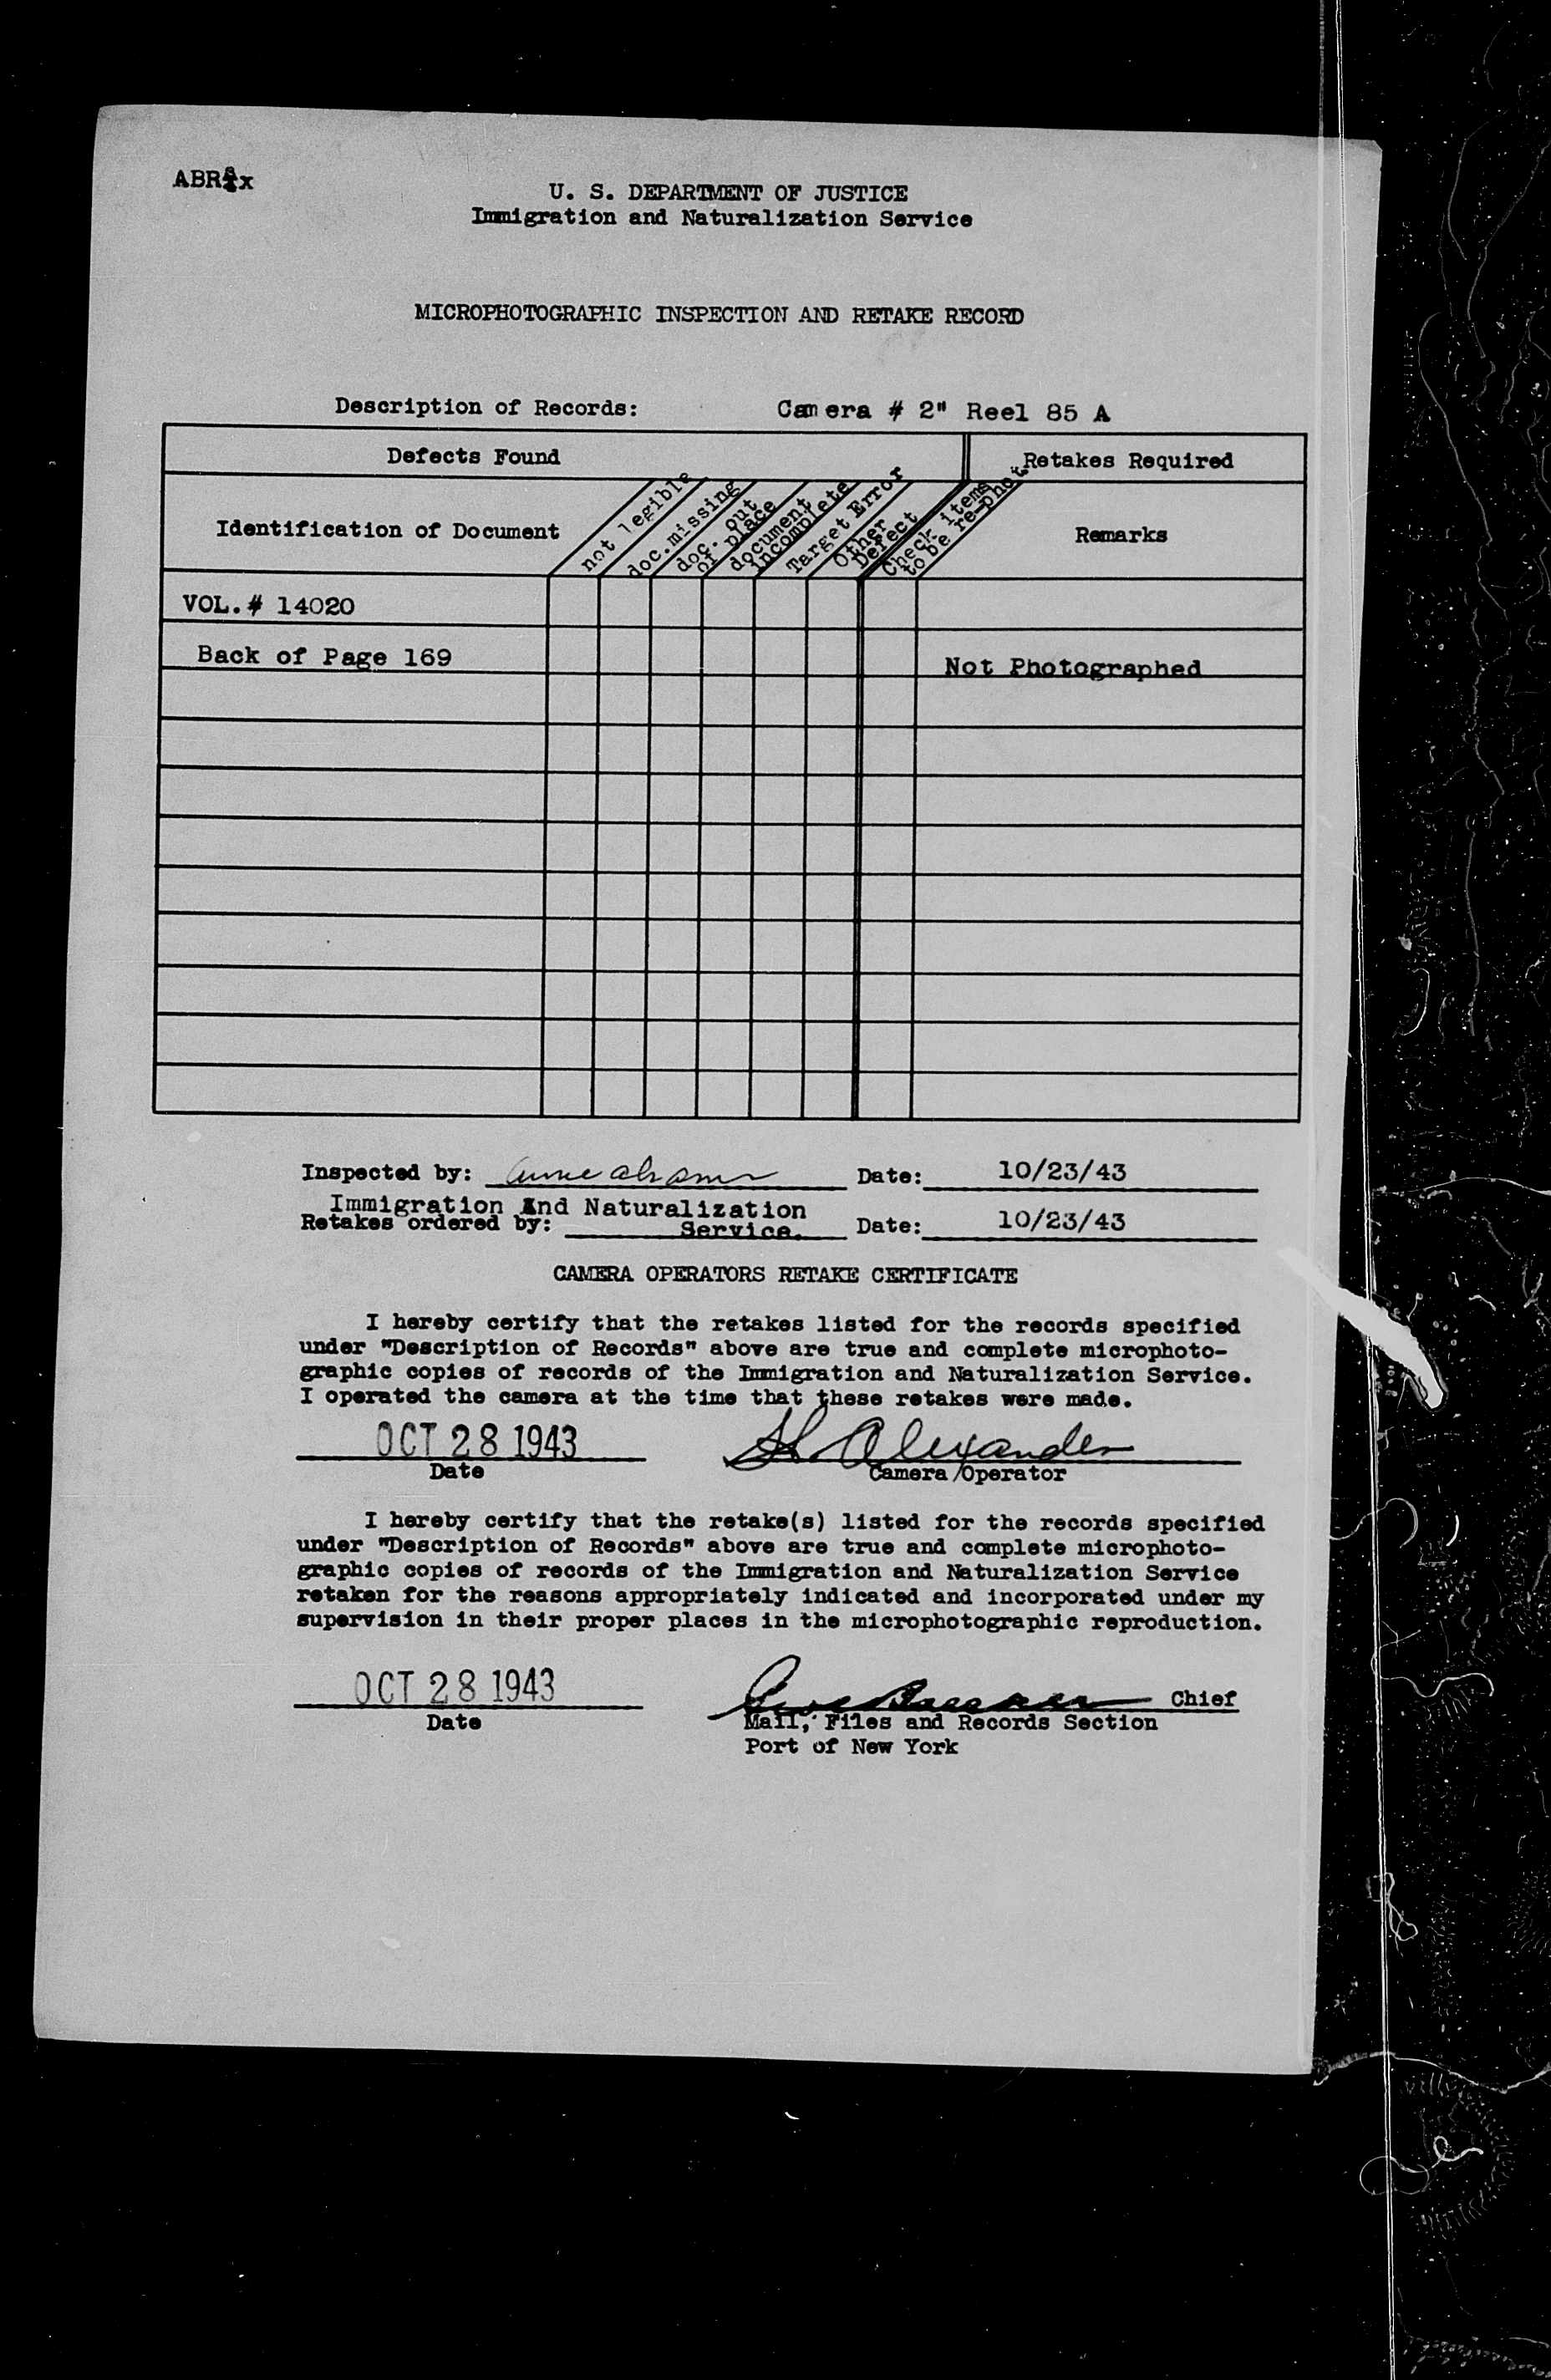 ABR:x
U. S. DEPARTMENT OF JUSTICE
Immigration and Naturalization Service
MICROPHOTOGRAPHIC INSPECTION AND RETAKE RECORD
Description of Records: Camera # 2" Reel 85 A
Defects Found
Retakes Required
Identification of Document
not legible
doc.missing
doc. out
of place
document
incomplete
Target Error
Other
Defect
Check items
to be re-phot.
Remarks
VOL.# 14020
Back of Page 169 Not Photographed
Inspected by: Date: 10/23/43
Immigration And Naturalization
Retakes ordered by: Service. Date: 10/23/43
CAMERA OPERATORS RETAKE CERTIFICATE
I hereby certify that the retakes listed for the records specified
under "Description of Records" above are true and complete microphoto-
graphic copies of records of the Immigration and Naturalization Service.
I operated the camera at the time that these retakes were made.
OCT 28 1943 H. Alexander
Date Camera Operator
I hereby certify that the retake(s) listed for the records specified
under "Description of Records" above are true and complete microphoto-
graphic copies of records of the Immigration and Naturalization Service
retaken for the reasons appropriately indicated and incorporated under my
supervision in their proper places in the microphotographic reproduction.
OCT 28 1943 Chief
Date Mail, Files and Records Section
Port of New York